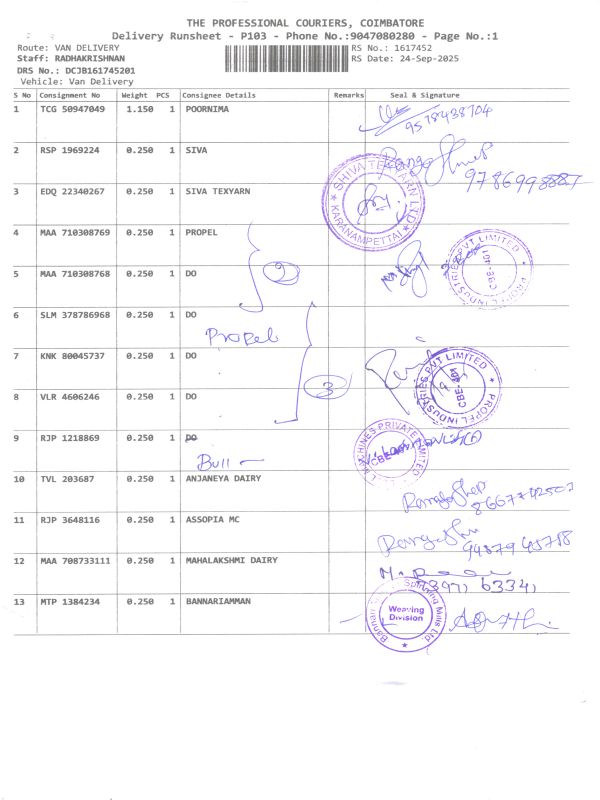 THE PROFESSIONAL COURIERS, COIMBATORE
Delivery Runsheet - P103 - Phone No.:9047080280 - Page No.:1
Route: VAN DELIVERY
RS No.: 1617452
Staff: RADHAKRISHNAN
RS Date: 24-Sep-2025
DRS No.: DCJB161745201
Vehicle: Van Delivery
S No Consignment No Weight PCS Consignee Details Remarks Seal & Signature
1 TCG 50947049 1.150 1 POORNIMA
9578438704
2 RSP 1969224 0.250 1 SIVA
9786998887
3 EDQ 22340267 0.250 1 SIVA TEXYARN
SHIVA TEXYARN LTD
KARANAMPETTAI
4 MAA 710308769 0.250 1 PROPEL
PROPEL INDUSTRIES PVT LIMITED
CBE-401
5 MAA 710308768 0.250 1 DO
2
6 SLM 378786968 0.250 1 DO
Propel
7 KNK 80045737 0.250 1 DO
PROPEL INDUSTRIES PVT LIMITED
CBE-401
3
8 VLR 4606246 0.250 1 DO
9 RJP 1218869 0.250 1 DO
MACHINES PRIVATE LIMITED
Bull
10 TVL 203687 0.250 1 ANJANEYA DAIRY
11 RJP 3648116 0.250 1 ASSOPIA MC
94879 45788
12 MAA 708733111 0.250 1 MAHALAKSHMI DAIRY
63341
13 MTP 1384234 0.250 1 BANNARIAMMAN
Spinning Mills Ltd.
Weaving
Division